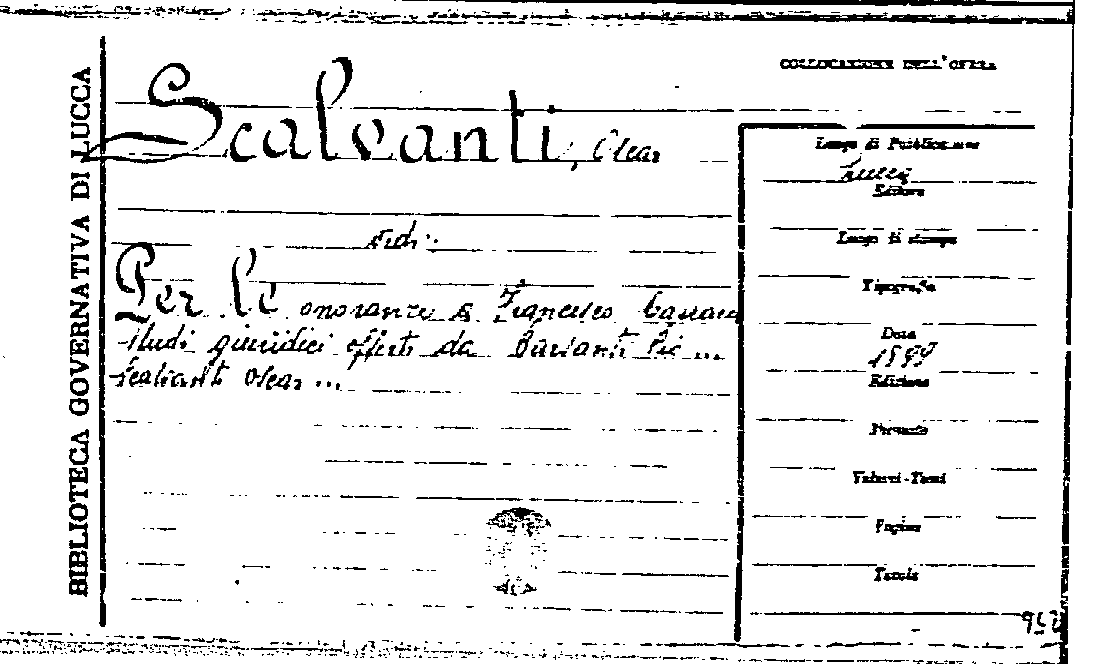 BIBLIOTECA GOVERNATIVA DI LUCCA
COLLOCAZIONE DELL'OPERA
Scalvanti, Oscar
vedi:
Per le onoranze a Francesco Carrara
Studi giuridici offerti da Barsanti Pio ...
Scalvanti Oscar ...
Luogo di Pubblicazione
Lucca
Editore
Luogo di stampa
Tipografia
Data
1899
Edizione
Formato
Volumi-Tomi
Pagine
Tavole